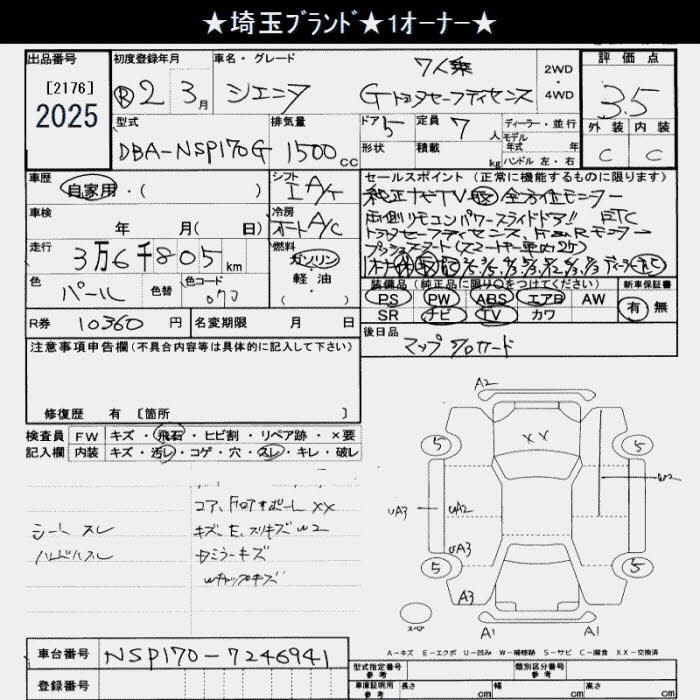 ★埼玉ﾌﾞﾗﾝﾄﾞ★1オーナー★
出品番号 初度登録年月 車名・グレード 7人乗 2WD・4WD 評価点
[2176]
2025
Ⓡ2 3月 シエンタ Gトヨタセーフティセンス 3.5
型式 排気量 ドア 5 定員 7人 ディーラー・並行 外装 内装
DBA-NSP170G 1500cc 形状 積載 kg モデル年式 年 ハンドル 左・右 C C
車歴 シフト セールスポイント(正常に機能するものに限ります)
自家用・( ) I A/T 純正ナビTV 全方位モニター
車検 冷房 両側リモコンパワースライドドア!! ETC
年 月( 日) オートA/C トヨタセーフティセンス
走行 燃料 プッシュスタート
3万6千805km ガソリン
色 色替 色コード 軽油
パール 070 ・( )
装備品(純正品に限り○をつけてください) 新車保証書
PS PW ABS エアB AW 有 無
SR ナビ TV カワ
R券 10360円 名変期限 月 日
後日品
注意事項申告欄(不具合内容等は具体的に記入して下さい) マップ
修復歴 有 [箇所 ]
検査員 FW キズ・飛石・ヒビ割・リペア跡・×要
記入欄 内装 キズ・汚レ・コゲ・穴・スレ・キレ・破レ
コア、 XX
シート スレ キズ、E、スリキズ W2
ハンドルスレ ミラーキズ
キズ
A2
XX
5 5
W2
UA3 UA2
UA3
5 5
A3
スペア
A1 A1
A-キズ E-エクボ U-凹み W-補修跡 S-サビ C-腐食 XX-交換済
車台番号 NSP170-7246941
登録番号
型式指定番号 参考 類別区分番号 参考
車庫証明用 参考 長さ cm 幅 cm 高さ cm